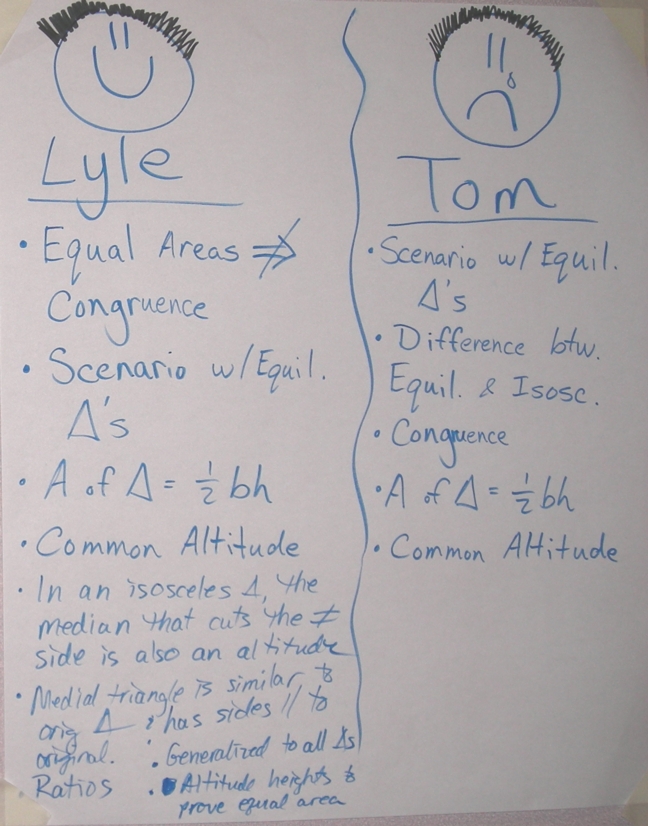 Lyle
• Equal Areas ⇏
Congruence
• Scenario w/Equil.
Δ's
• A of Δ = 1/2 bh
• Common Altitude
• In an isosceles Δ, the
median that cuts the ≠
side is also an altitude
• Medial triangle is similar to
orig Δ & has sides // to
original.
• Generalized to all Δs
• Ratios
• Altitude heights to
prove equal area
Tom
• Scenario w/ Equil.
Δ's
• Difference btw.
Equil. & Isosc.
• Congruence
• A of Δ = 1/2 bh
• Common Altitude